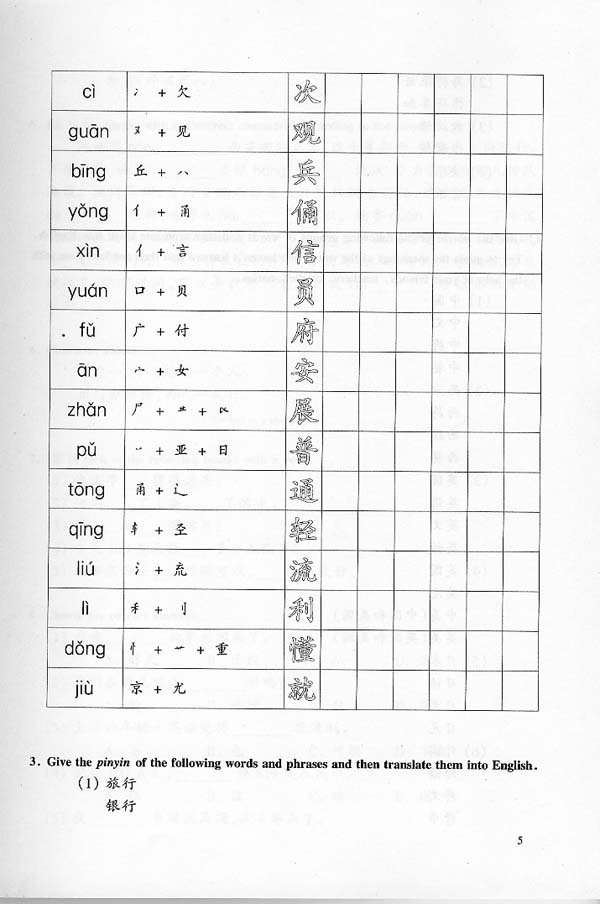 cì 冫 + 欠 次
guān 又 + 见 观
bīng 丘 + 八 兵
yǒng 亻 + 甬 俑
xìn 亻 + 言 信
yuán 口 + 贝 员
. fǔ 广 + 付 府
ān 宀 + 女 安
zhǎn 尸 + 龷 + 𧘇 展
pǔ 䒑 + 亚 + 日 普
tōng 甬 + 辶 通
qīng 车 + 圣 轻
liú 氵 + 㐬 流
lì 禾 + 刂 利
dǒng 忄 + 艹 + 重 懂
jiù 京 + 尤 就
3. Give the pinyin of the following words and phrases and then translate them into English.
(1) 旅行
银行
5